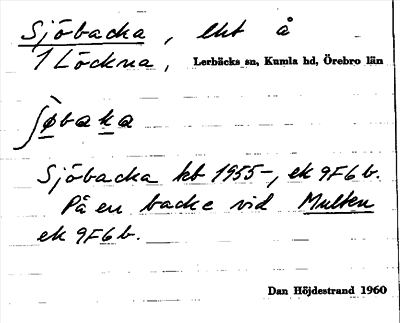 Sjöbacka, lht å
1 Löckna, Lerbäcks sn, Kumla hd, Örebro län
ʃø̀baka
Sjöbacka kb 1955-, ek 9F6b.
På en backe vid Multen
ek 9F6b.
Dan Höjdestrand 1960